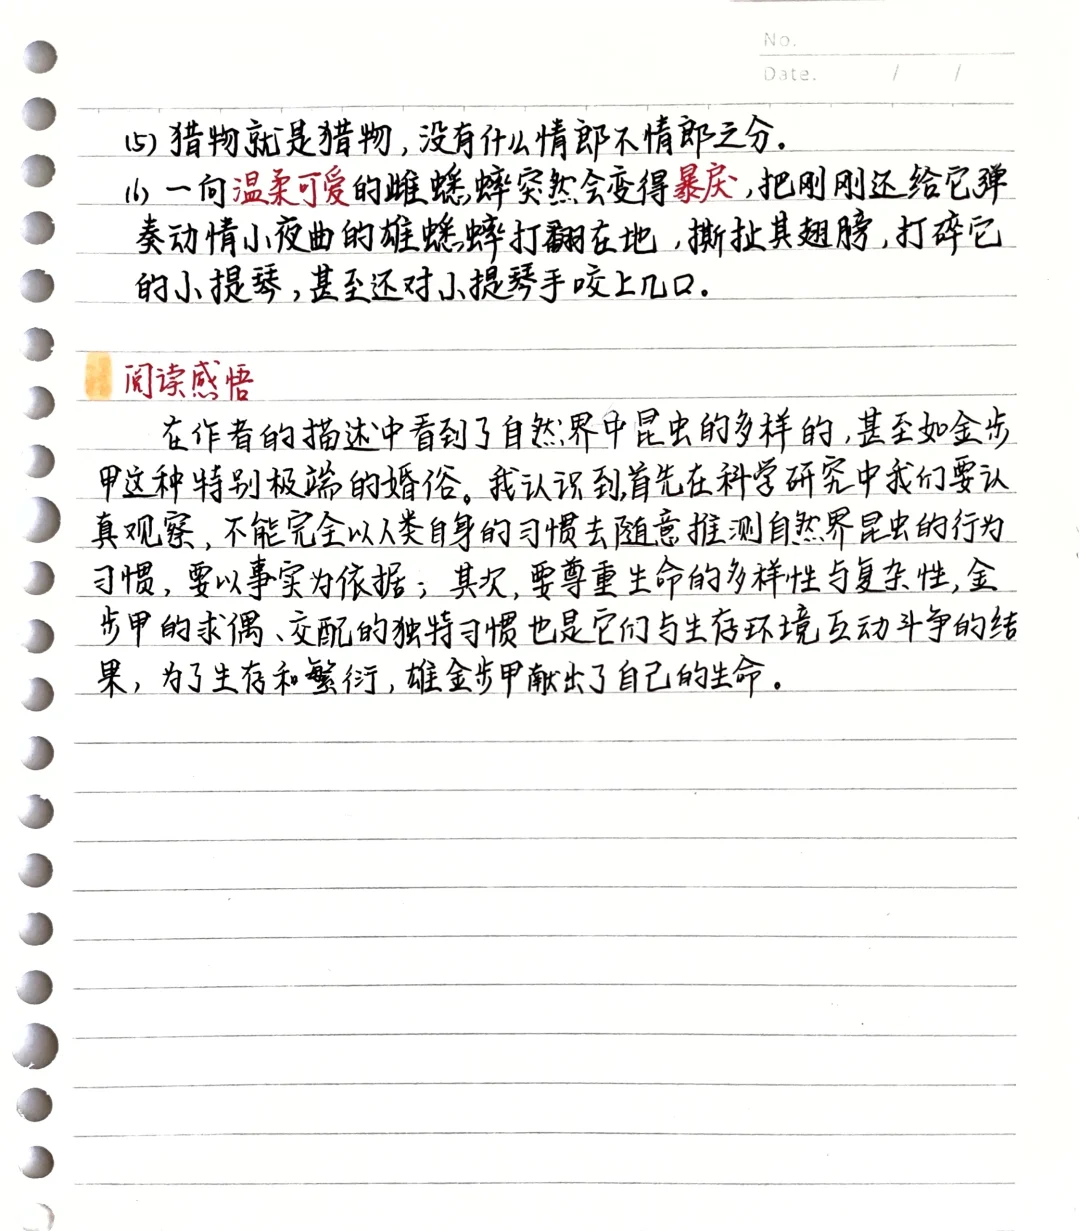 No.
Date. / /
(5) 猎物就是猎物,没有什么情郎不情郎之分.
(6) 一向温柔可爱的雌蟋蟀突然会变得暴戾,把刚刚还给它弹
奏动情小夜曲的雄蟋蟀打翻在地,撕扯其翅膀,打碎它
的小提琴,甚至还对小提琴手咬上几口.
阅读感悟
在作者的描述中看到了自然界中昆虫的多样的,甚至如金步
甲这种特别极端的婚俗。我认识到,首先在科学研究中我们要认
真观察,不能完全以人类自身的习惯去随意推测自然界昆虫的行为
习惯,要以事实为依据;其次,要尊重生命的多样性与复杂性,金
步甲的求偶、交配的独特习惯也是它们与生存环境互动斗争的结
果,为了生存和繁衍,雄金步甲献出了自己的生命.